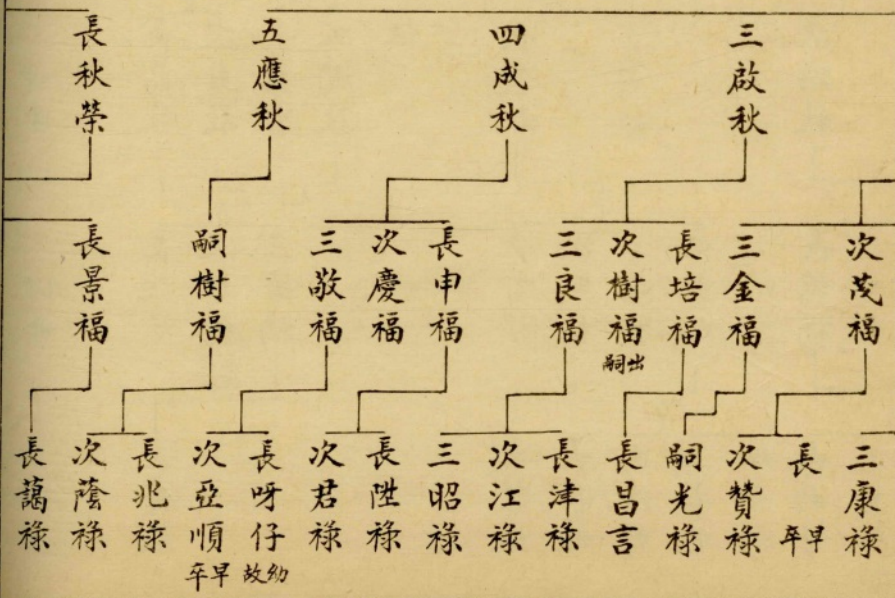 三啟秋
四成秋
五應秋
長秋榮
次茂福
三金福
長培福
次樹福出嗣
三良福
長申福
次慶福
三敬福
嗣樹福
長景福
三康祿
長早卒
次贊祿
嗣光祿
長昌言
長津祿
次江祿
三昭祿
長陞祿
次君祿
長呀仔幼故
次亞順早卒
長兆祿
次蔭祿
長藹祿